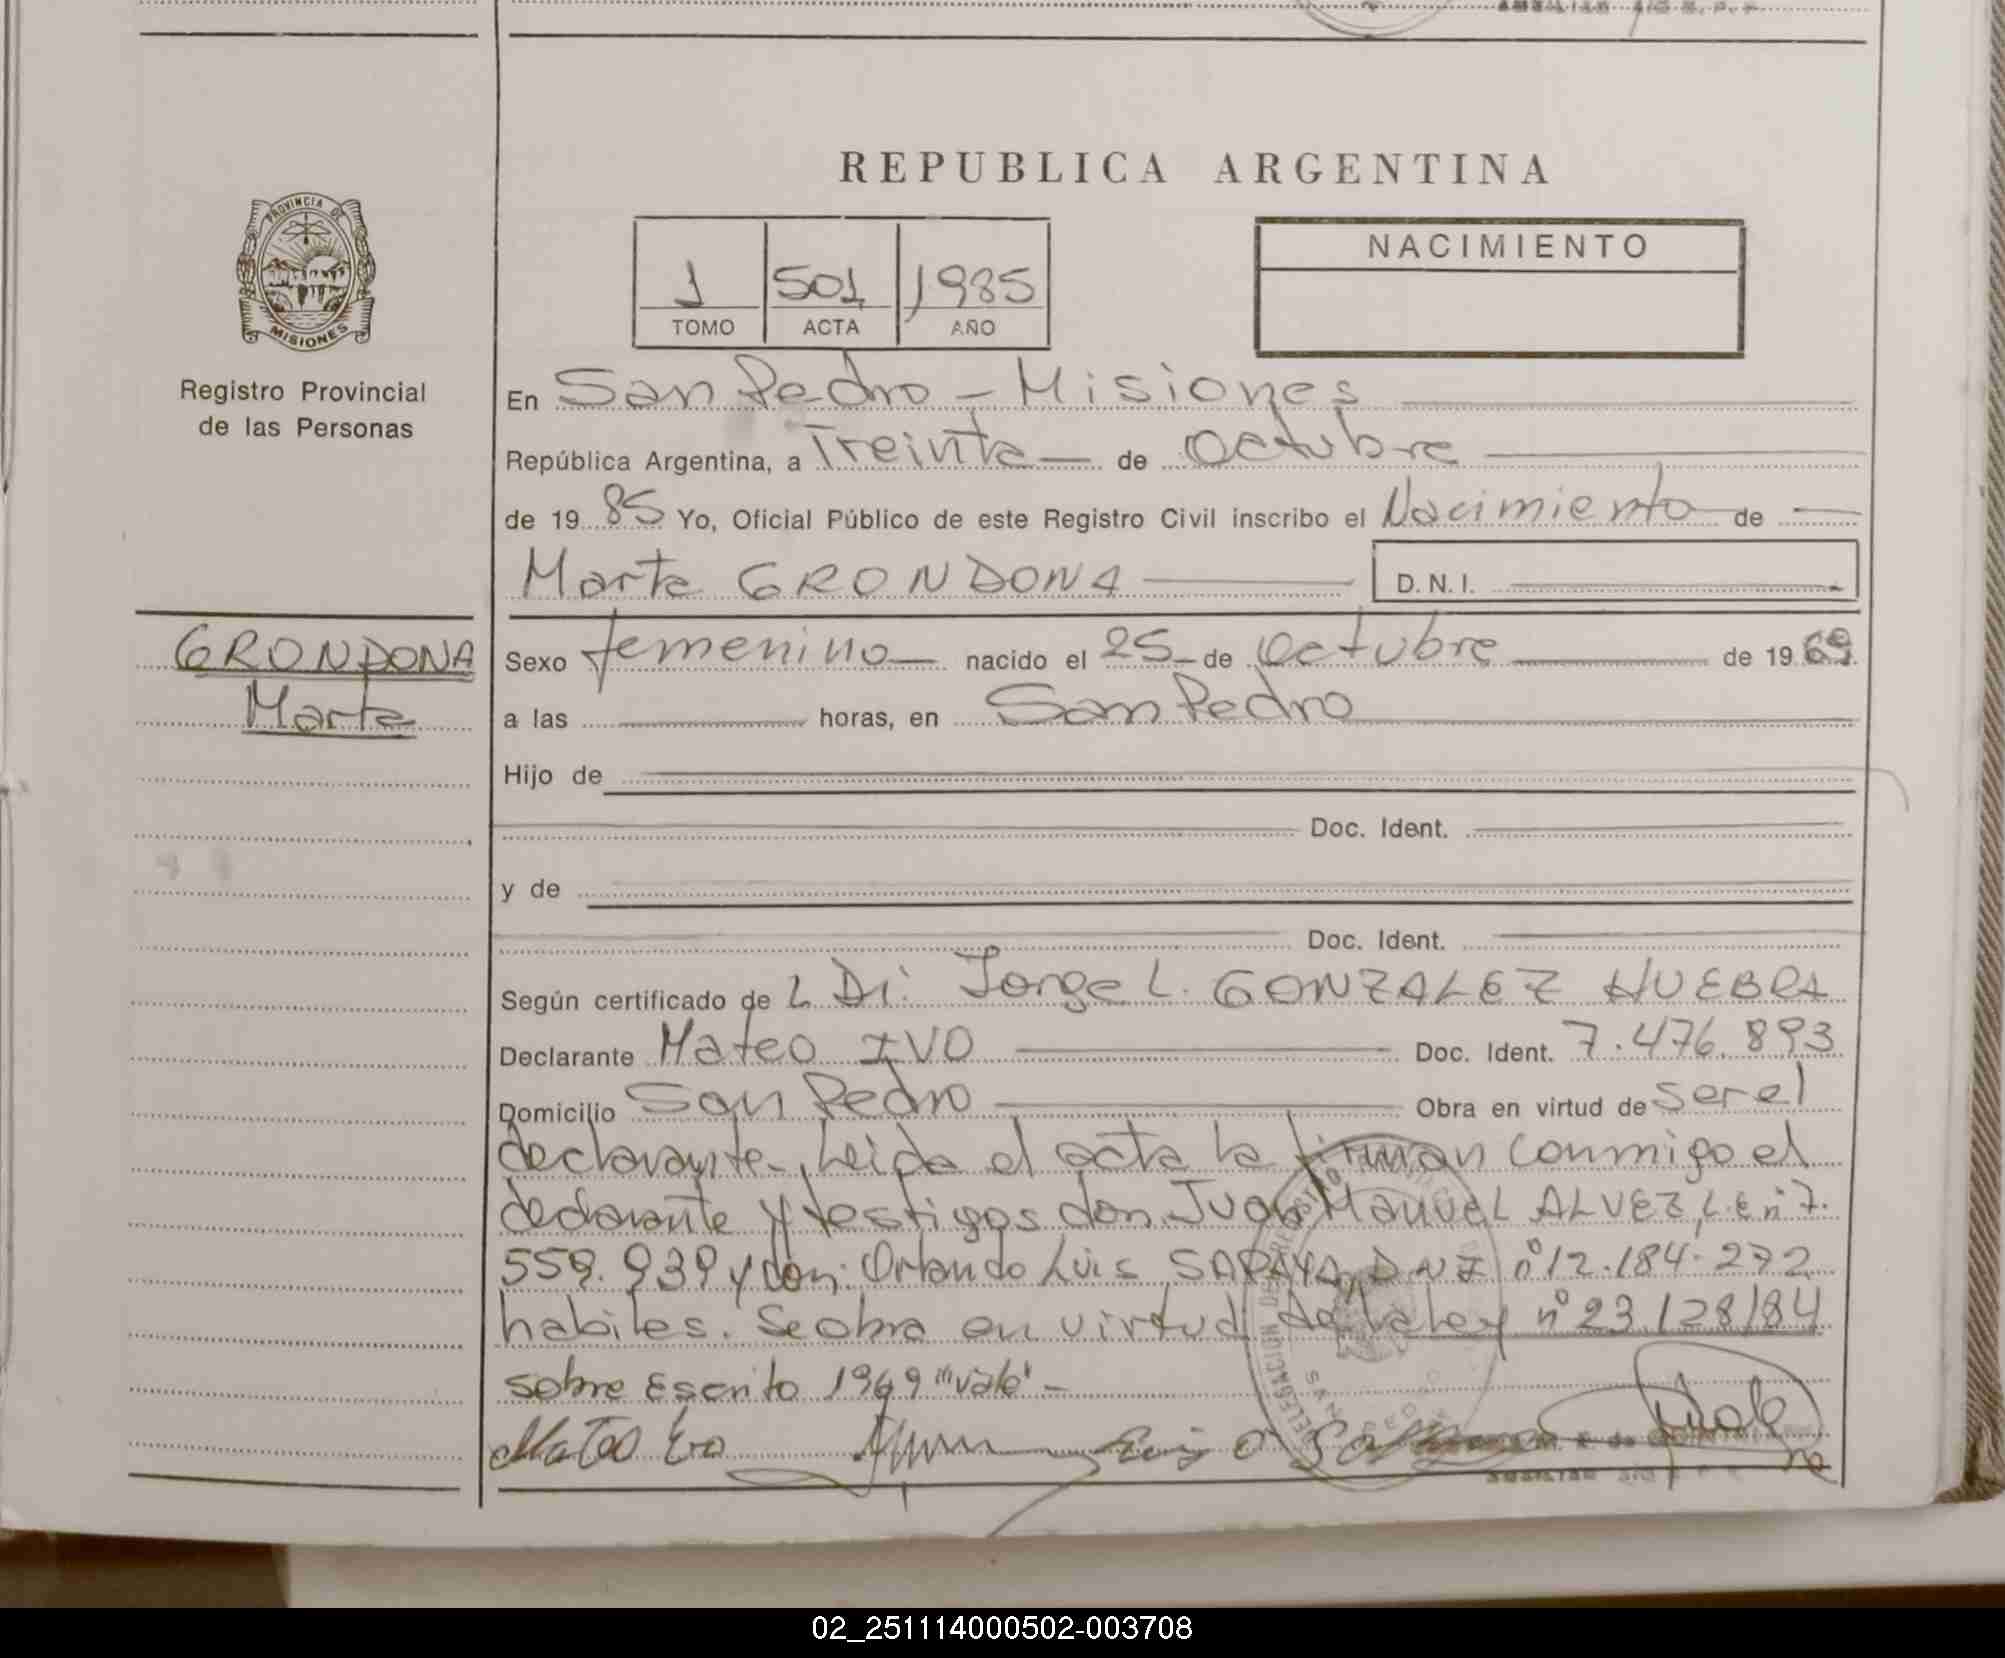 REPUBLICA ARGENTINA
PROVINCIA DE
MISIONES
Registro Provincial
de las Personas
1 501 1985
TOMO ACTA AÑO
NACIMIENTO
En San Pedro - Misiones
República Argentina, a Treinta de Octubre
de 1985 Yo, Oficial Público de este Registro Civil inscribo el Nacimiento de
Marta GRONDONA D.N.I.
GRONDONA
Marta
Sexo femenino nacido el 25 de Octubre de 1969
a las horas, en San Pedro
Hijo de
Doc. Ident.
y de
Doc. Ident.
Según certificado de L. Di. Jorge L. GONZALEZ HUEBRA
Declarante Mateo IVO Doc. Ident. 7.476.893
Domicilio San Pedro Obra en virtud de ser el
declarante. Leida el acta la firman conmigo el
declarante y testigos don Juan Manuel ALVEZ, L.E nº 7.
559.939 y don: Orlando Luis SAPAYA, DNI nº 12.184.272
habiles. Se obra en virtud de la Ley nº 23128/84
sobre Escrito 1969 "vale" -
Mateo Ivo
02_251114000502-003708